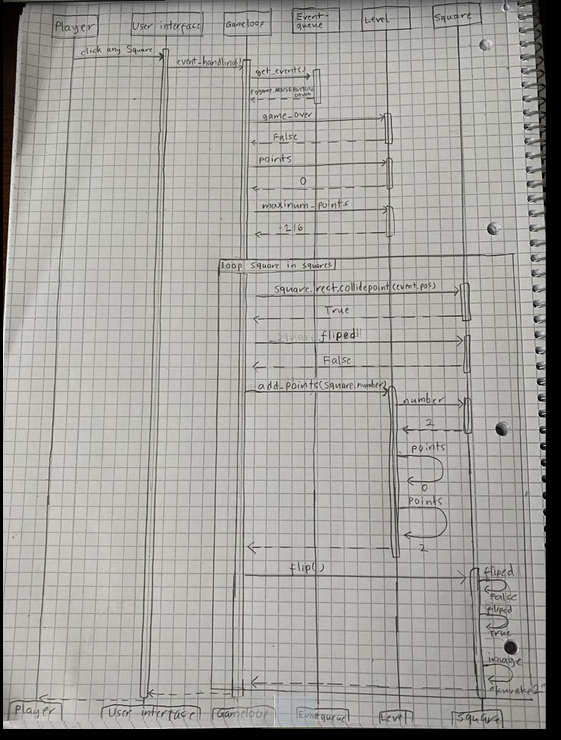 Player
User interface
Gameloop
Event-
queue
Level
Square
click any Square
event_handling()
get_event()
pygame.MOUSEBUTTON
DOWN
game_over
False
points
0
maximum_points
216
loop square in squares
square.rect.collidepoint(event.pos)
True
fliped
False
add_points(square.number)
number
2
points
0
points
2
flip()
fliped
False
fliped
True
image
Player
User interface
Gameloop
Eventqueue
Level
Square